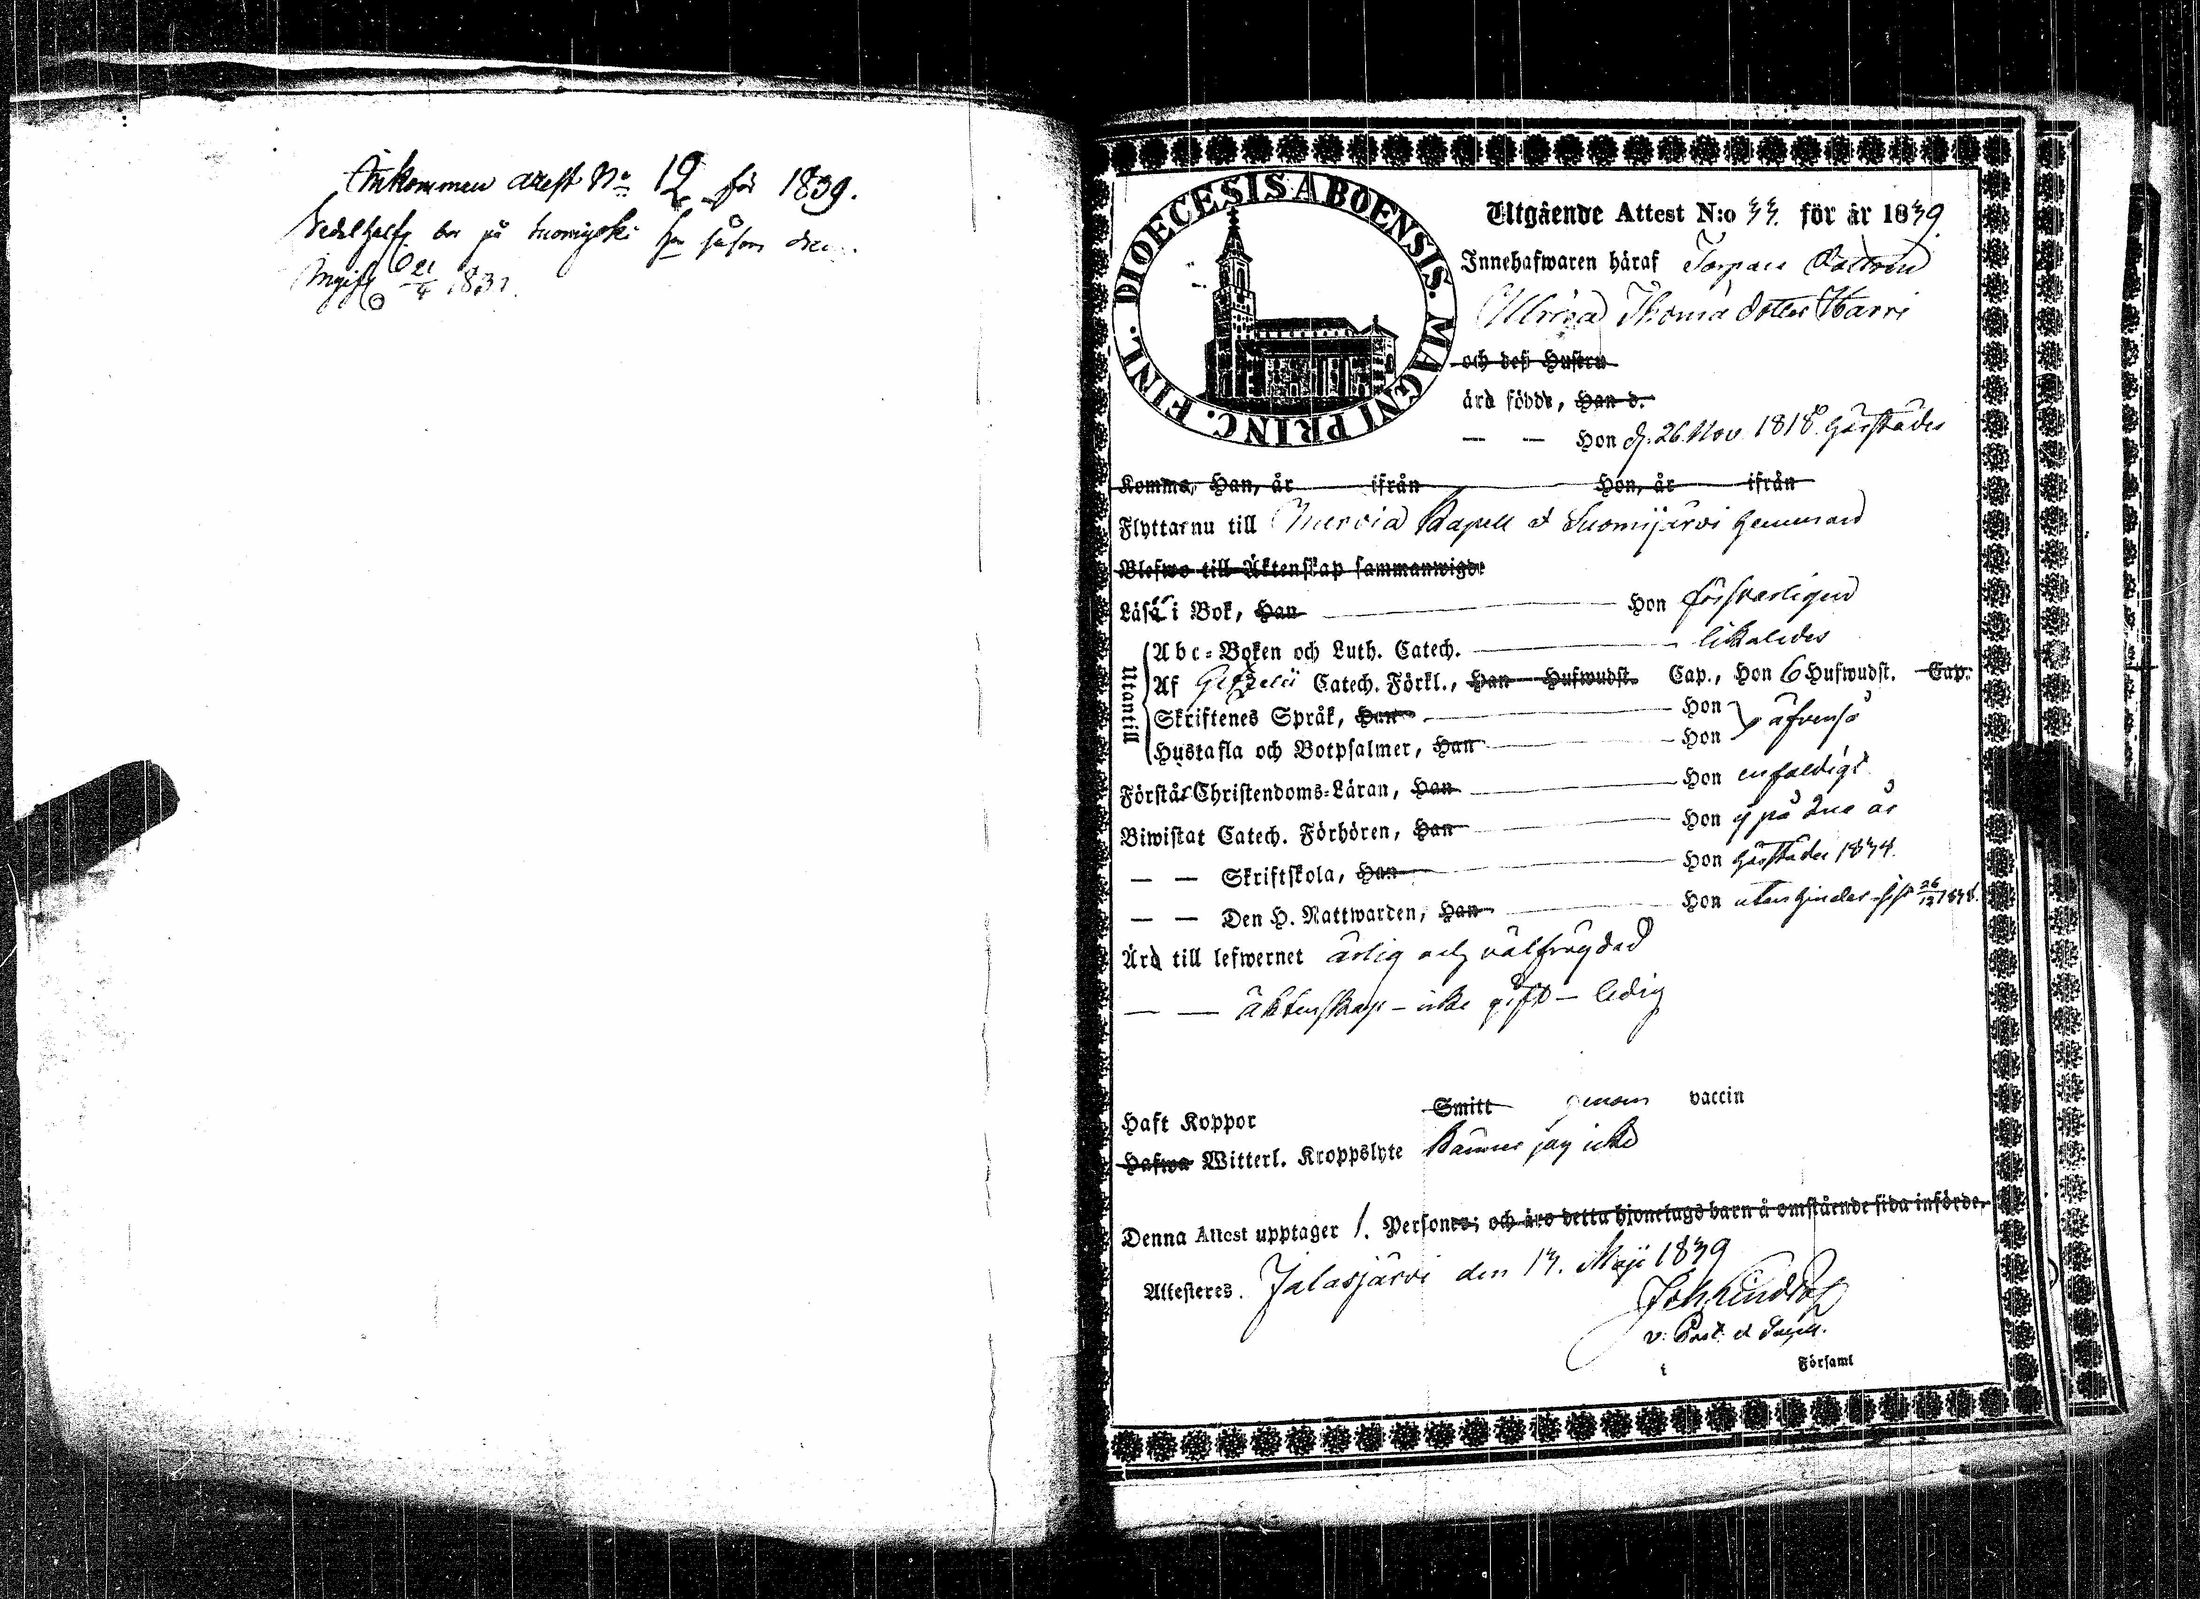 Inkommen attest No 12 för 1839.
bor på
21/4
DIOECESIS ABOENSIS. MAGNI PRINC. FINL.
Utgående Attest N:o 33. för år 1839.
Innehafwaren häraf Torpare Dottren
Ulrica Thomædotter Harri
och deß Hustru
ärd födde, Han d.
— — Hon d. 26 Nov. 1818 härstädes
Komma, Han, år ifrån Hon, år ifrån
Flyttar nu till Mervia Kapell et Suomijärvi hemman
Blefwo till Äktenskap sammanwigde
Läsa i Bok, Han Hon försvarligen
Utantill
Abc-Boken och Luth. Catech. likaledes
Af Gezelii Catech. Förkl., Han Hufwudst. Cap., Hon 6 Hufwudst. Cap.
Skriftenes Språk, Han Hon
Hustafla och Botpsalmer, Han Hon äfvenså
Förstår Christendoms-Läran, Han Hon enfaldigt
Biwistat Catech. Förhören, Han Hon ej på 2ne år
— — Skriftskola, Han Hon härstädes 1834.
— — Den H. Nattwarden, Han Hon utan hinder sist 26/12 1838.
Ärd till lefwernet ärlig och välfrägdad
— — äktenskap – icke gift – ledig
Haft Koppor Smitt genom vaccin
Hafwa Witterl. Kroppslyte känner jag icke
Denna Attest upptager 1. Personer; och äro detta hjonelags barn å omstående sida införde.
Attesteres. Jalasjärvi den 13. Maji 1839
v: Past. et
i Församl